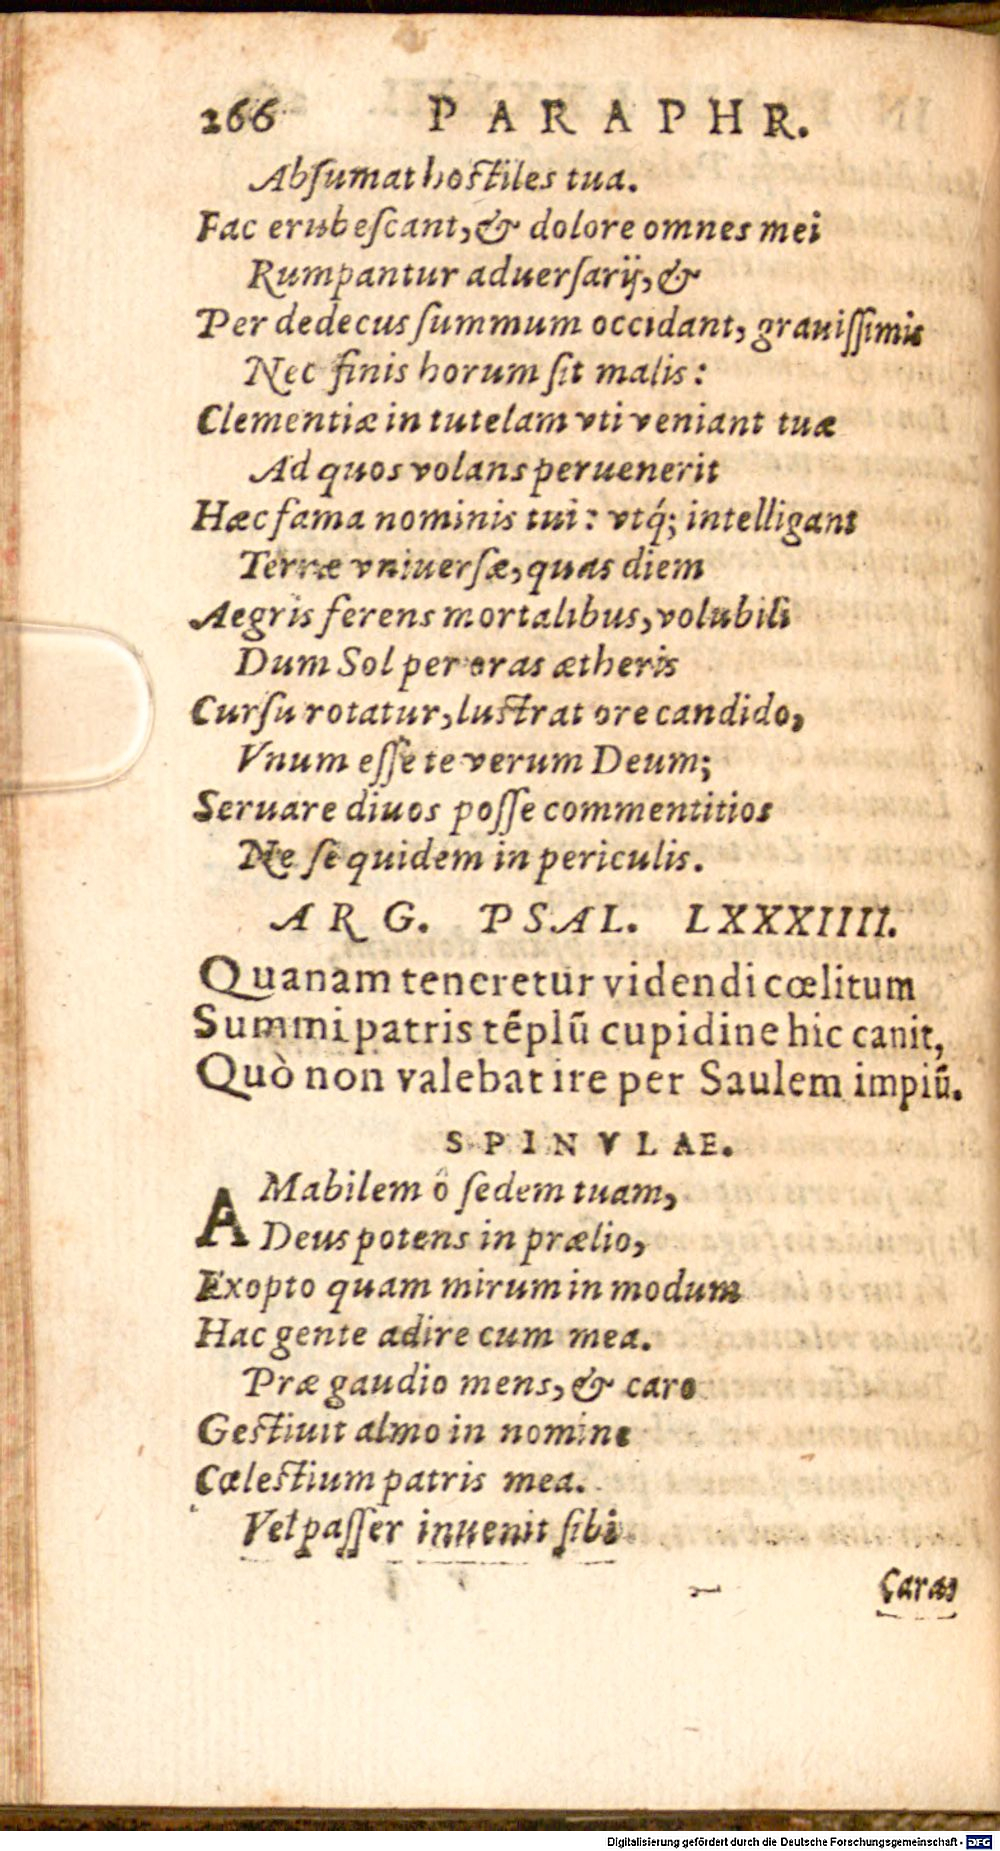 266 PARAPHR.
Abſumat hoſtiles tua.
Fac erubeſcant, & dolore omnes mei
Rumpantur aduerſarij, &
Per dedecus ſummum occidant, grauiſſimis
Nec finis horum ſit malis:
Clementiæ in tutelam vti veniant tuæ
Ad quos volans peruenerit
Hæc fama nominis tui: vtq́; intelligant
Terræ vniuerſæ, quas diem
Aegris ferens mortalibus, volubili
Dum Sol per oras ætheris
Curſu rotatur, luſtrat ore candido,
Vnum eſſe te verum Deum;
Seruare diuos poſſe commentitios
Ne ſe quidem in periculis.
ARG. PSAL. LXXXIIII.
Quanam teneretur videndi cœlitum
Summi patris tẽplũ cupidine hic canit,
Quò non valebat ire per Saulem impiũ.
SPINVLAE.
AMabilem ô ſedem tuam,
Deus potens in prælio,
Exopto quam mirum in modum
Hac gente adire cum mea.
Præ gaudio mens, & caro
Geſtiuit almo in nomine
Cœleſtium patris mea.
Vel paſſer inuenit ſibi
Caras
Digitalisierung gefördert durch die Deutsche Forschungsgemeinschaft - DFG